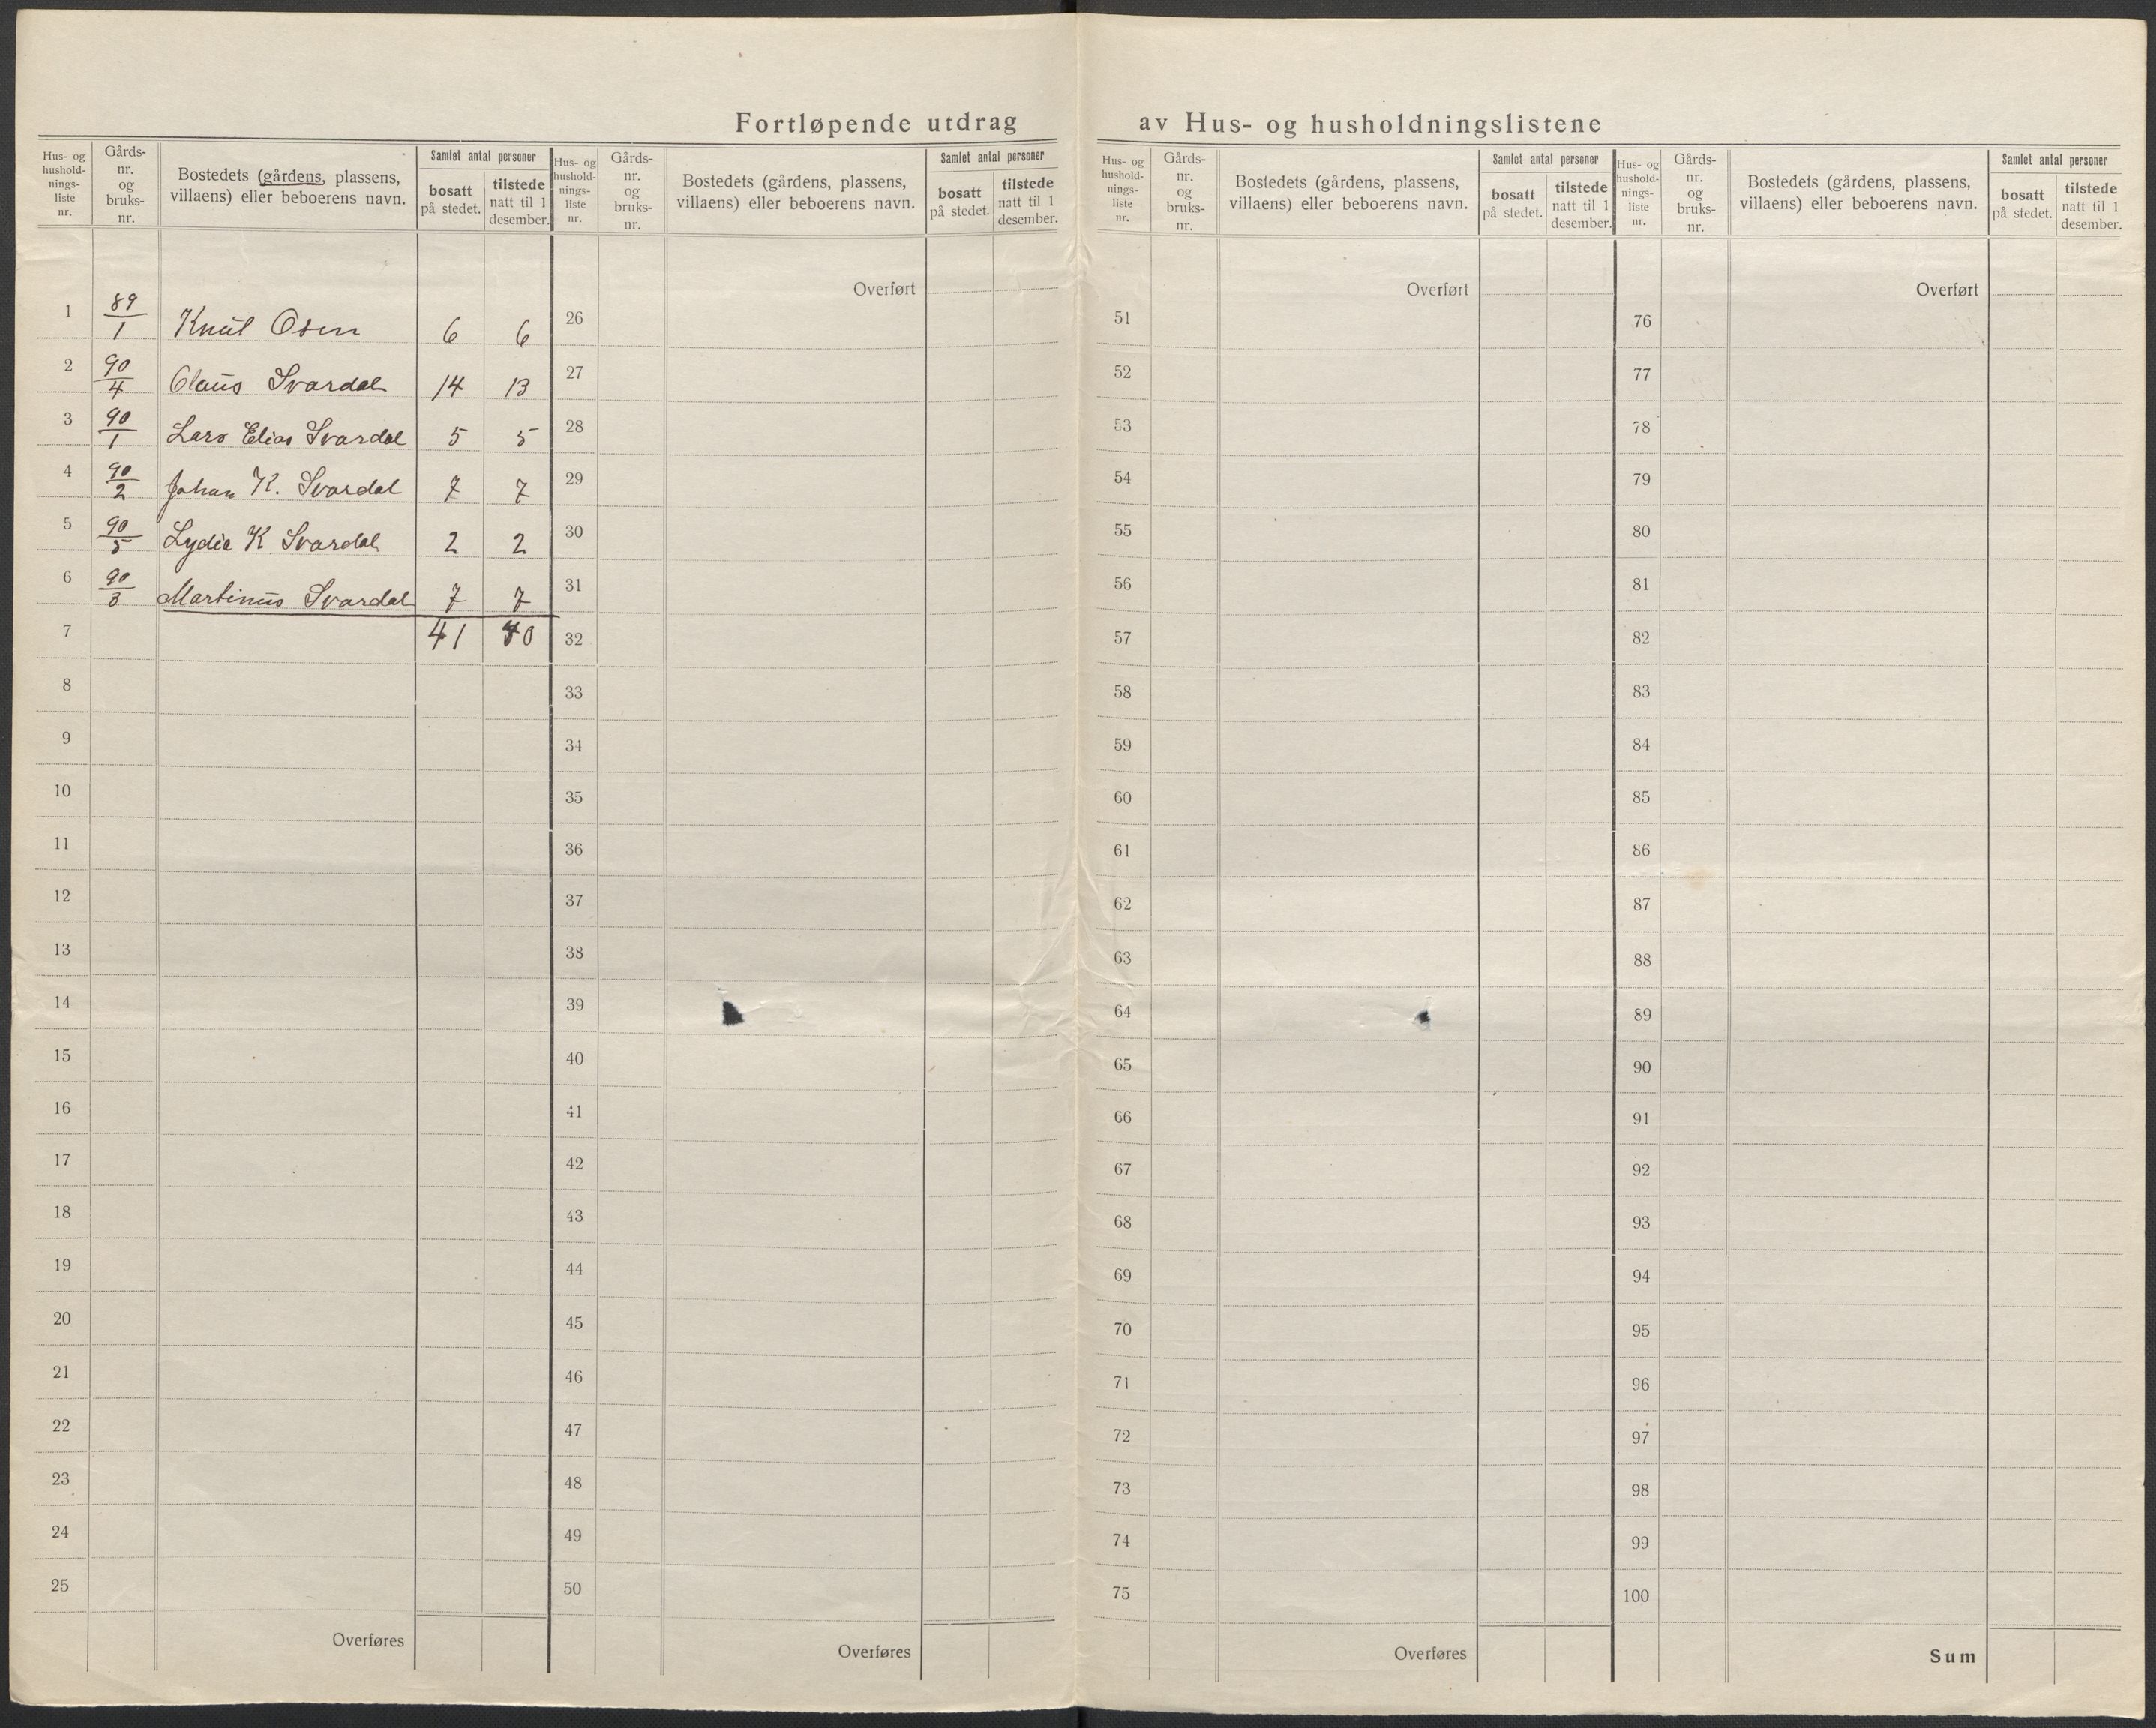 Fortløpende utdrag av Hus- og husholdningslistene
Hus- og hushold-nings-liste nr. Gårds-nr. og bruks-nr. Bostedets (gårdens, plassens, villaens) eller beboerens navn. Samlet antal personer bosatt på stedet. tilstede natt til 1 desember.
Hus- og hushold-nings-liste nr. Gårds-nr. og bruks-nr. Bostedets (gårdens, plassens, villaens) eller beboerens navn. Samlet antal personer bosatt på stedet. tilstede natt til 1 desember.
Hus- og hushold-nings-liste nr. Gårds-nr. og bruks-nr. Bostedets (gårdens, plassens, villaens) eller beboerens navn. Samlet antal personer bosatt på stedet. tilstede natt til 1 desember.
Hus- og hushold-nings-liste nr. Gårds-nr. og bruks-nr. Bostedets (gårdens, plassens, villaens) eller beboerens navn. Samlet antal personer bosatt på stedet. tilstede natt til 1 desember.
1 89/1 Knut Osen 6 6
2 90/4 Olaus Svardal 14 13
3 90/1 Lars Elias Svardal 5 5
4 90/2 Johan K. Svardal 7 7
5 90/5 Lydia K Svardal 2 2
6 90/3 Martinus Svardal 7 7
7 41 40
8
9
10
11
12
13
14
15
16
17
18
19
20
21
22
23
24
25
Overføres
Overført
26
27
28
29
30
31
32
33
34
35
36
37
38
39
40
41
42
43
44
45
46
47
48
49
50
Overføres
Overført
51
52
53
54
55
56
57
58
59
60
61
62
63
64
65
66
67
68
69
70
71
72
73
74
75
Overføres
Overført
76
77
78
79
80
81
82
83
84
85
86
87
88
89
90
91
92
93
94
95
96
97
98
99
100
Sum